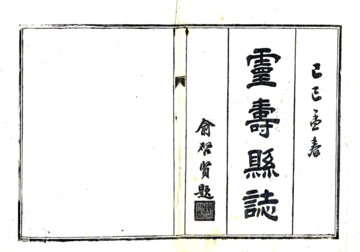 己巳孟春
靈壽縣誌
俞啓賢題